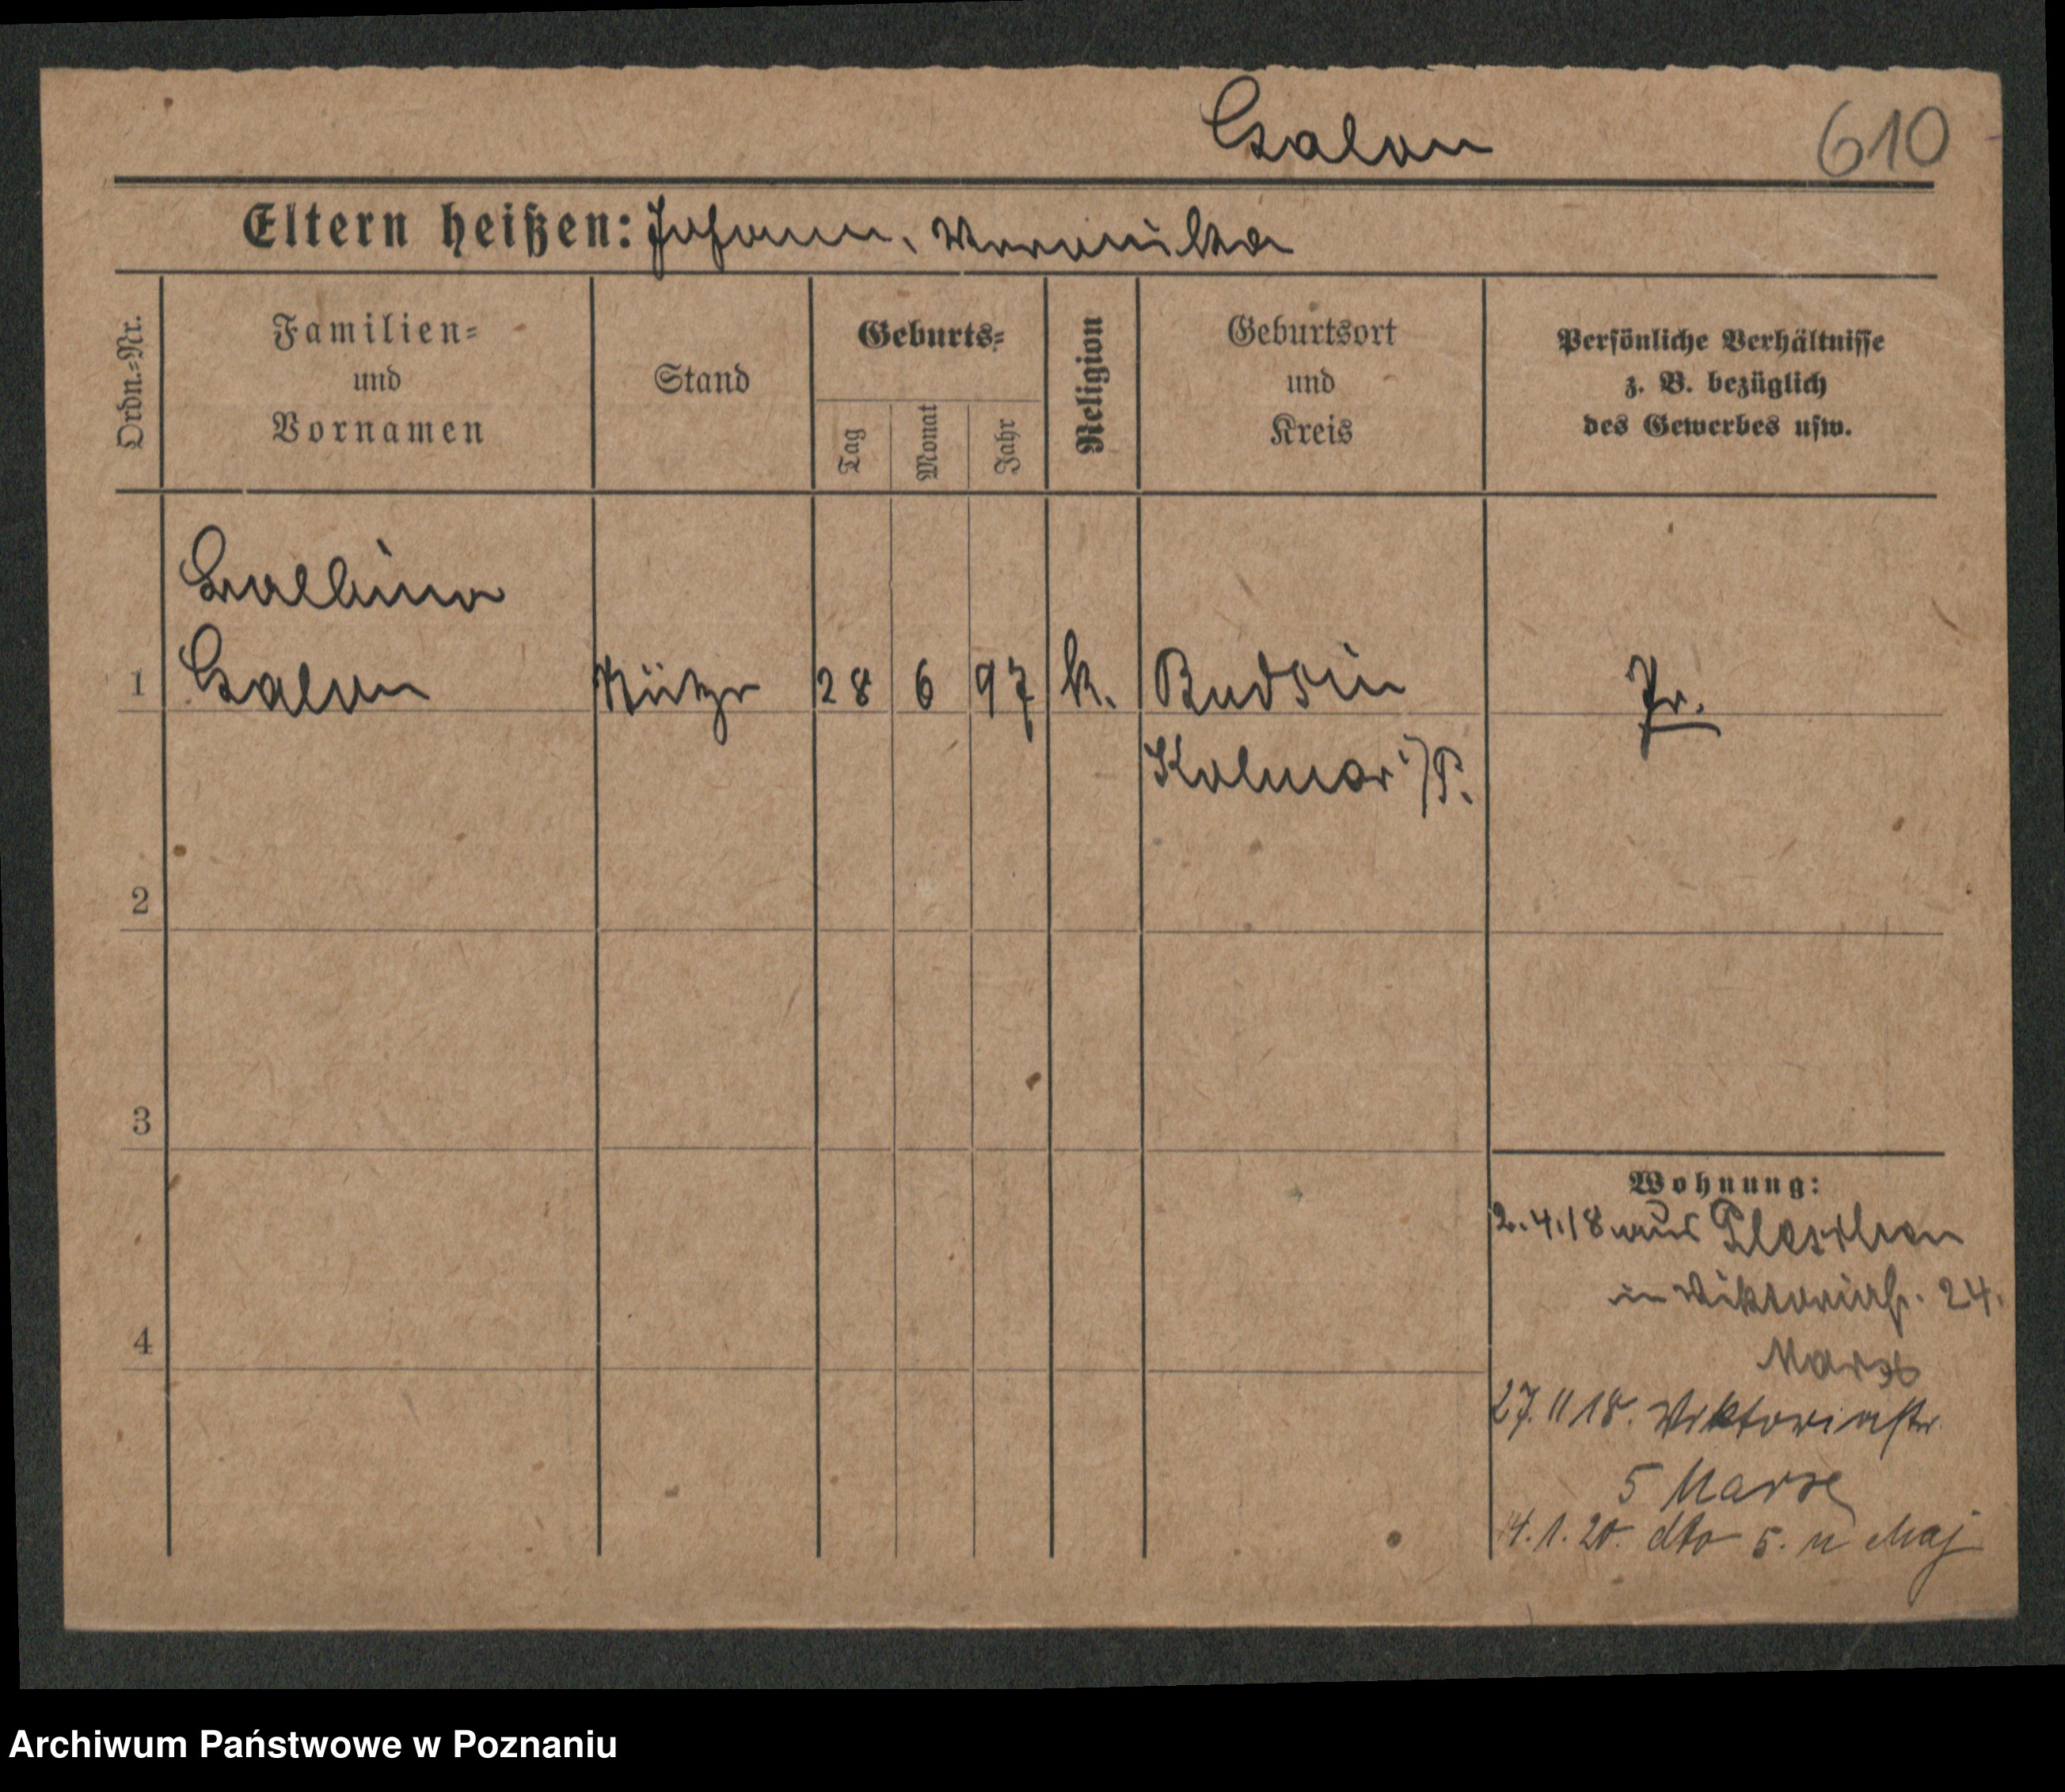 Csalon 610
Eltern heißen: Johann, Veronika
Ordn.-Nr.
Familien-
und
Vornamen
Stand
Geburts-
Tag
Monat
Jahr
Religion
Geburtsort
und
Kreis
Persönliche Verhältnisse
z. B. bezüglich
des Gewerbes usw.
1
28 6 97 k. Budsin
Kolmar i/P.
2
3
4
Wohnung:
2.4.18 aus
in Viktoriastr. 24.
Marx
27. 11 18. Viktoriastr.
5 Marx
4. 1. 20. dto 5. Maj
Archiwum Państwowe w Poznaniu